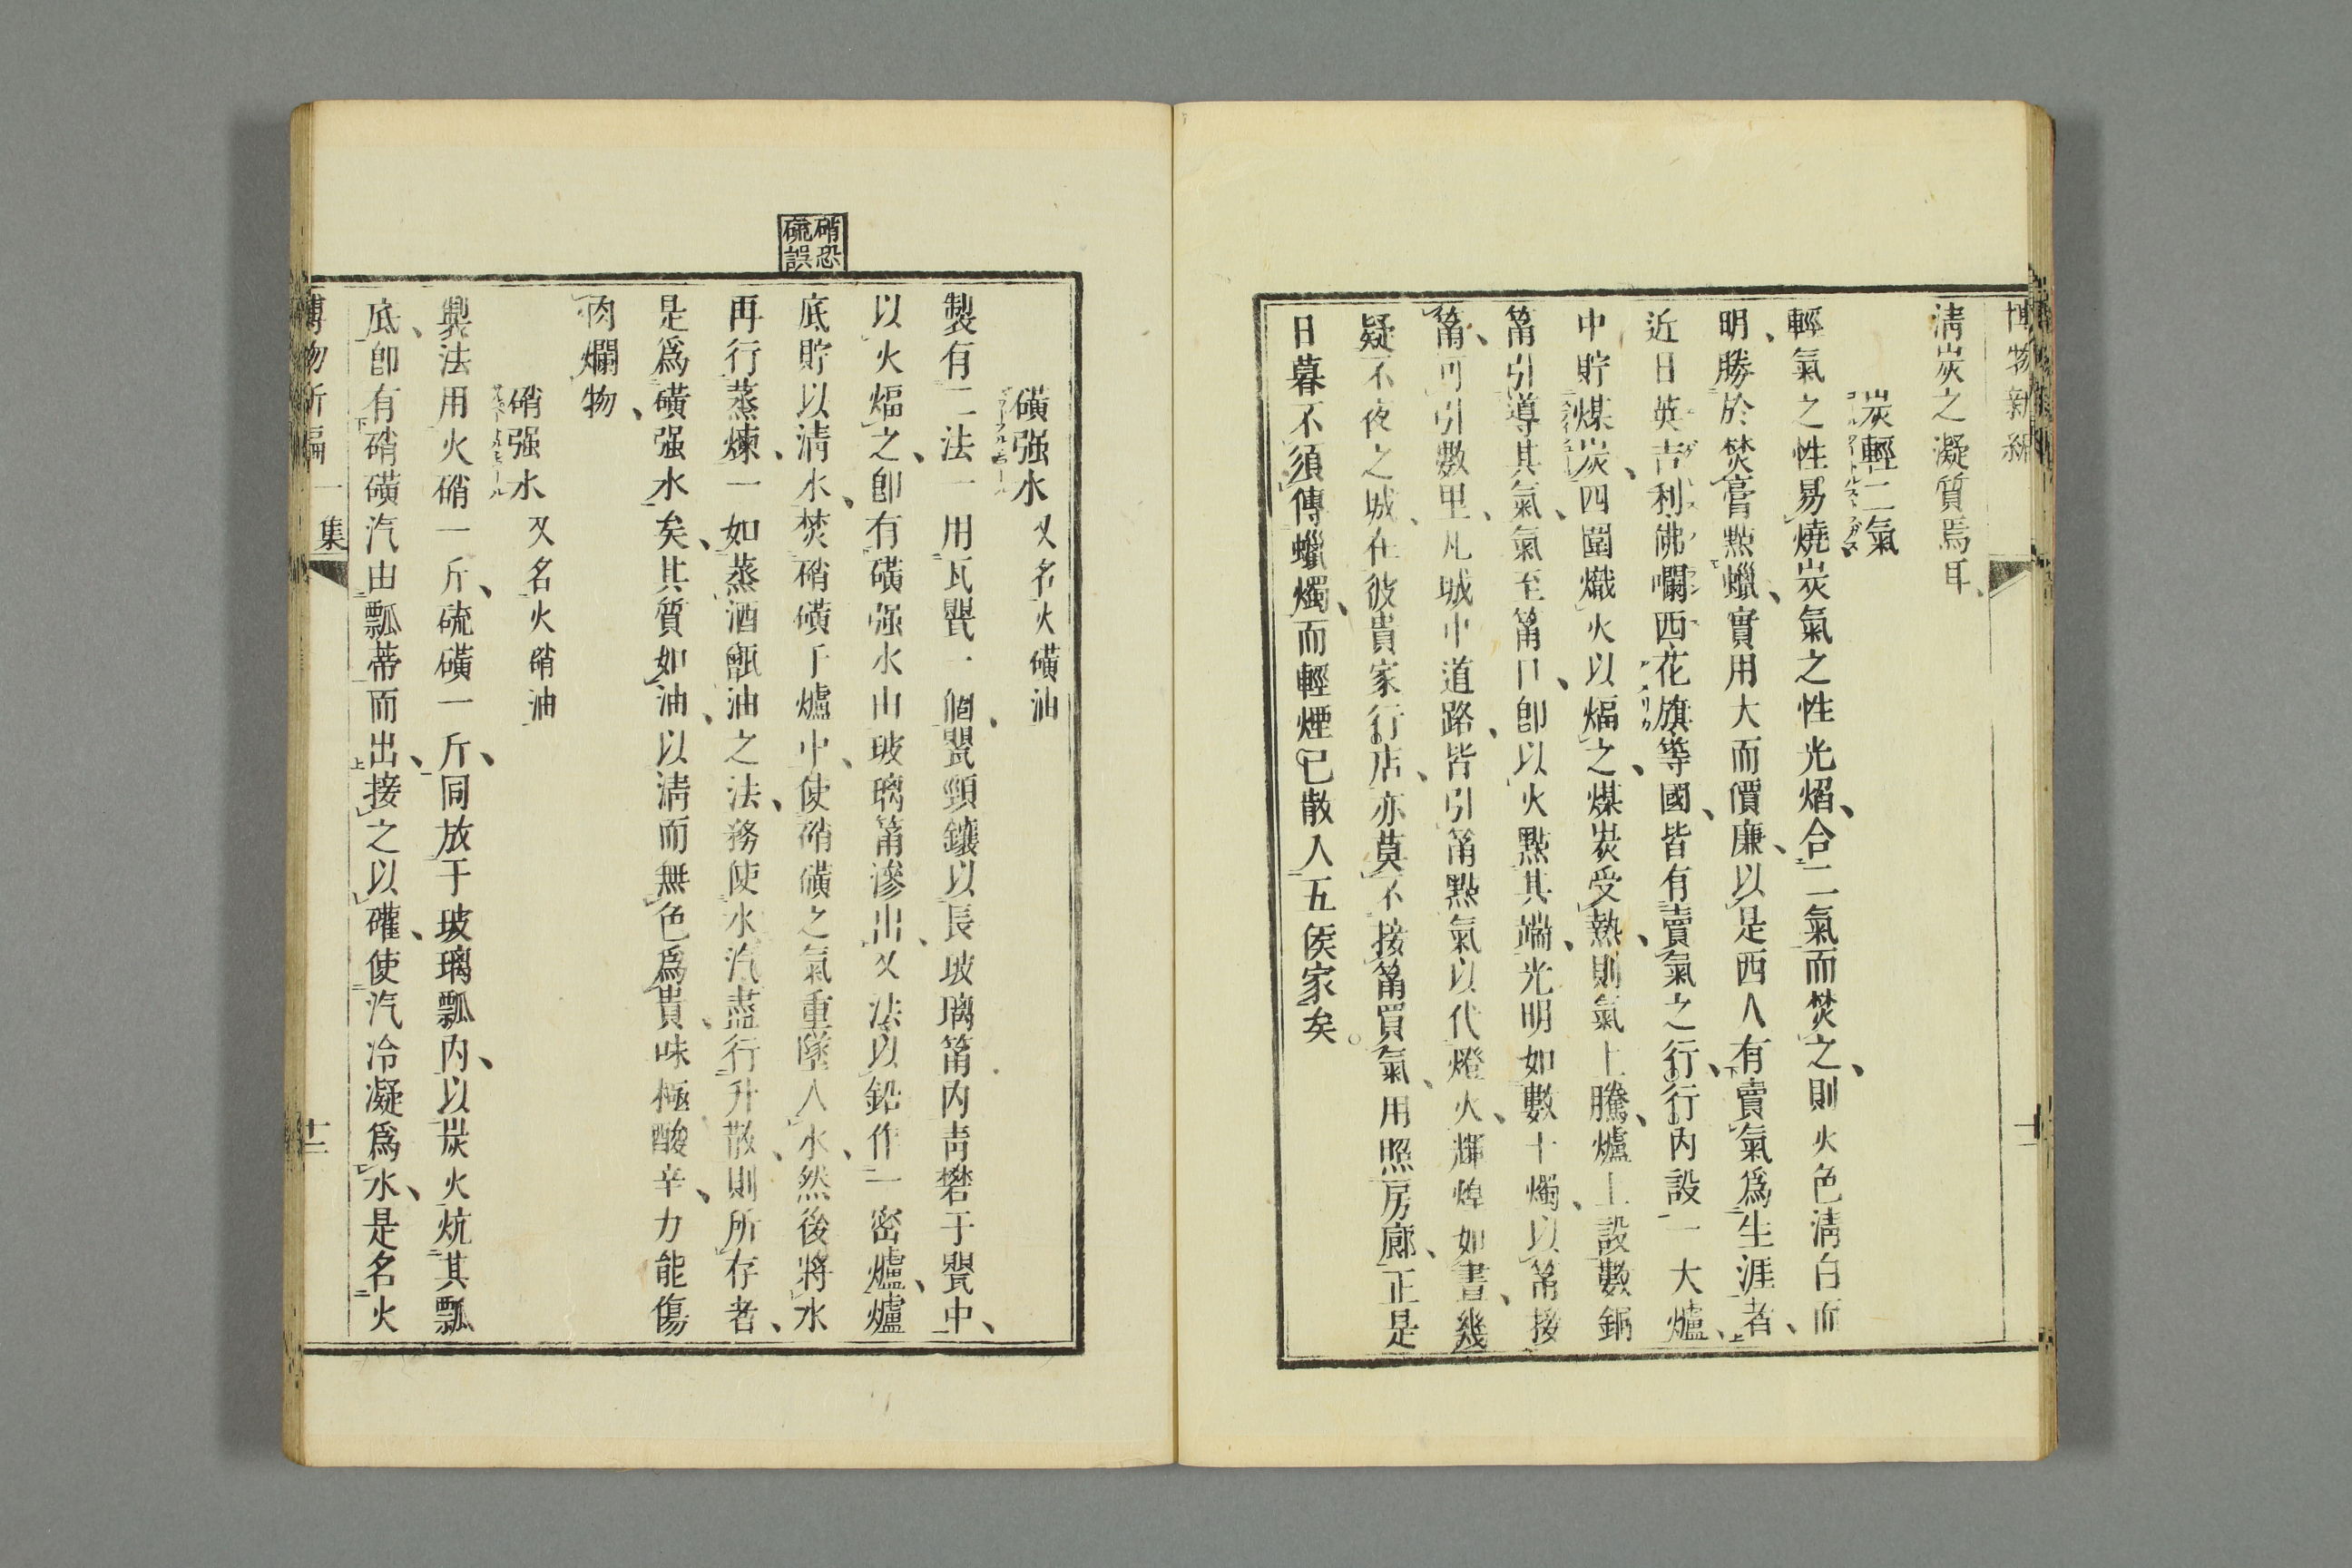 博物新編
淸炭之凝質焉耳、
炭輕二氣
輕氣之性易燒、炭氣之性光熖、合二氣而焚之、則火色淸白而
明、勝於焚膏點蠟、實用大而價廉、以是西人有賣氣爲生涯者、
近日英吉利佛囒西花旗等國、皆有賣氣之行、行內設一大爐、
中貯煤炭、四圍熾火以煏之、煤炭受熱、則氣上騰、爐上設數銅
筩引導其氣、氣至筩口、卽以火點其端、光明如數十燭、以筩接
筩、可引數里、凡城中道路、皆引筩點氣以代燈火、輝煌如晝、幾
疑不夜之城、在彼貴家行店、亦莫不接筩買氣、用照房廊、正是
日暮不須傳蠟燭、而輕煙已散入五矦家矣。
硝恐
硫誤
磺强水 又名火磺油
製有二法、一用瓦甖一個、甖頸鑲以長玻璃筩、內靑礬于甖中、
以火煏之、卽有磺强水由玻璃筩滲出、又法以鉛作一密爐、爐
底貯以淸水、焚硝磺于爐中、使硝磺之氣重墜入水、然後將水
再行蒸煉、一如蒸酒甑油之法、務使水汽盡行升散、則所存者、
是爲磺强水矣、其質如油、以淸而無色爲貴、味極酸辛、力能傷
肉爛物、
硝强水 又名火硝油
製法用火硝一斤、硫磺一斤、同放于玻璃瓢內、以炭火炕其瓢
底、卽有硝磺汽由瓢蒂而出、接之以礶、使汽冷凝爲水、是名火
博物新編 一集 十二